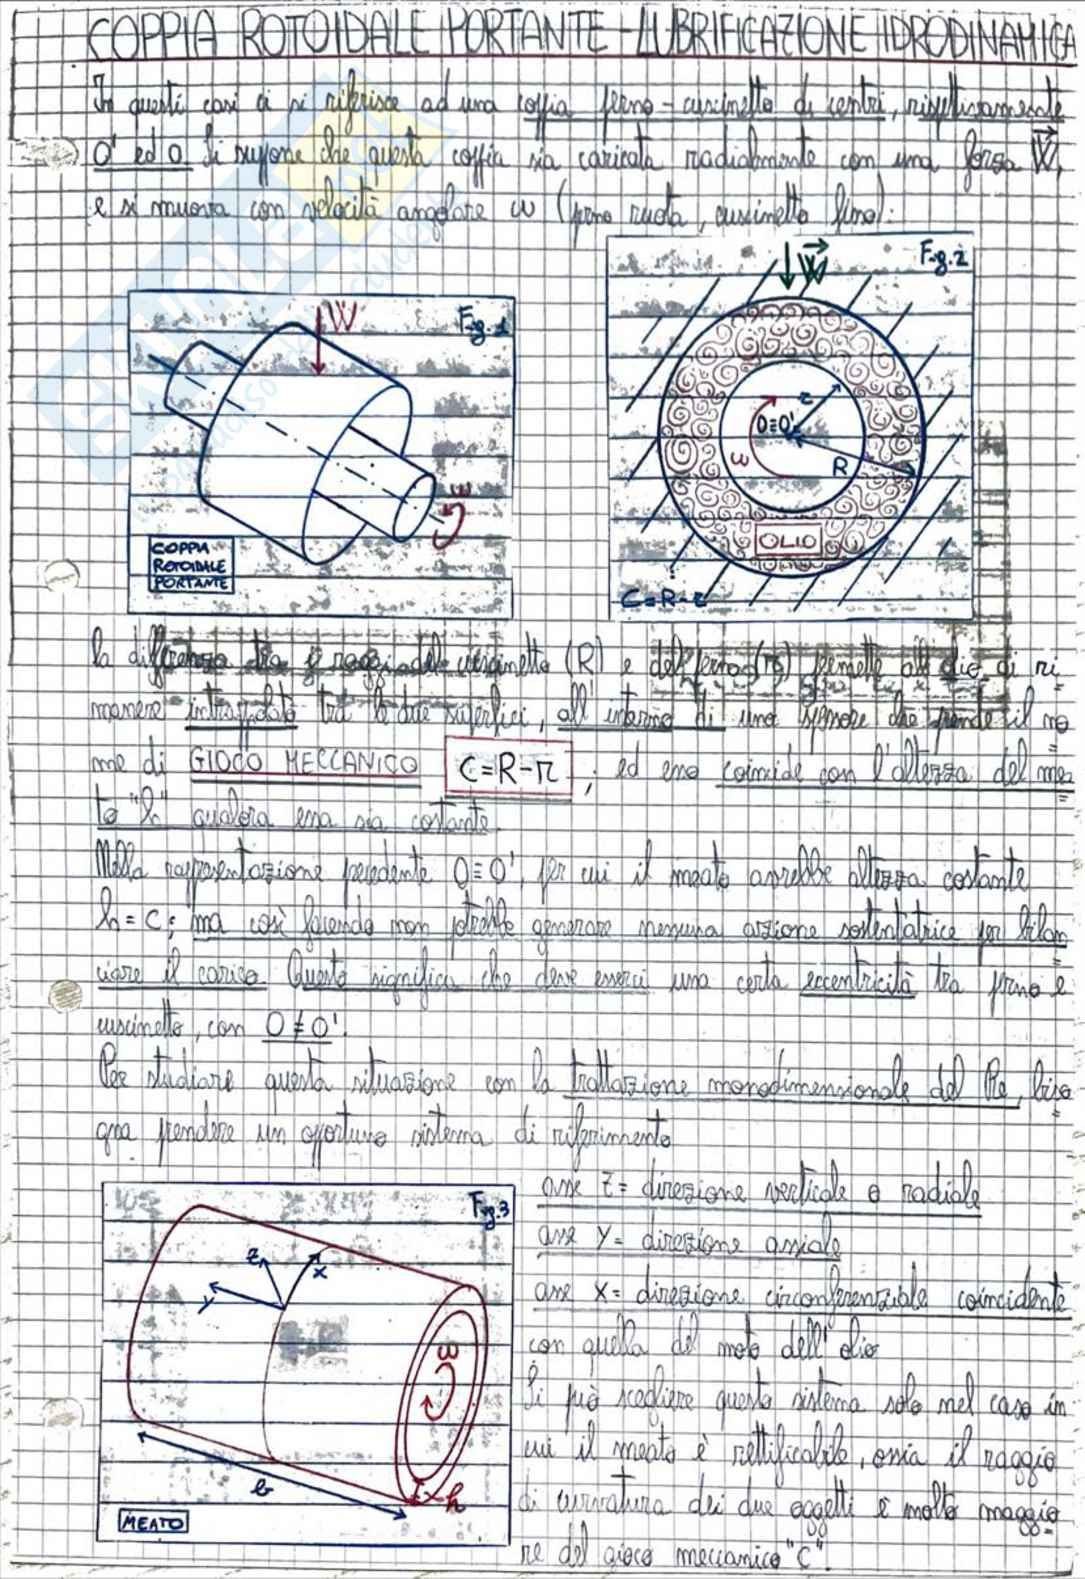 COPPIA ROTOIDALE PORTANTE - LUBRIFICAZIONE IDRODINAMICA
In questi casi ci si riferisce ad una coppia perno-cuscinetto di centri, rispettivamente
O' ed O. Si suppone che questa coppia sia caricata radialmente con una forza W,
e si muova con velocità angolare ω (perno ruota, cuscinetto fisso):
Fig. 1
W
ω
COPPIA
ROTOIDALE
PORTANTE
Fig. 2
W
O≡O'
r
R
ω
OLIO
C=R-r
la differenza tra i raggi del cuscinetto (R) e del perno (r) permette all'olio di ri
manere intrappolato tra le due superfici, all'interno di uno spessore che prende il no
me di GIOCO MECCANICO C=R-r ; ed esso coincide con l'altezza del mea
to "h" qualora essa sia costante.
Nella rappresentazione precedente O≡O', per cui il meato avrebbe altezza costante
h=C; ma così facendo non potrebbe generare nessuna azione sostentatrice per bilan
ciare il carico. Questo significa che deve esserci una certa eccentricità tra perno e
cuscinetto, con O≠O'.
Per studiare questa situazione con la trattazione monodimensionale del Re, biso
gna prendere un opportuno sistema di riferimento
Fig. 3
z
x
y
ω
b
h
MEATO
asse Z= direzione verticale o radiale
asse Y= direzione assiale
asse X= direzione circonferenziale coincidente
con quella del moto dell'olio
Si può scegliere questo sistema solo nel caso in
cui il meato è rettificabile, ossia il raggio
di curvatura dei due oggetti è molto maggio
re del gioco meccanico "C".